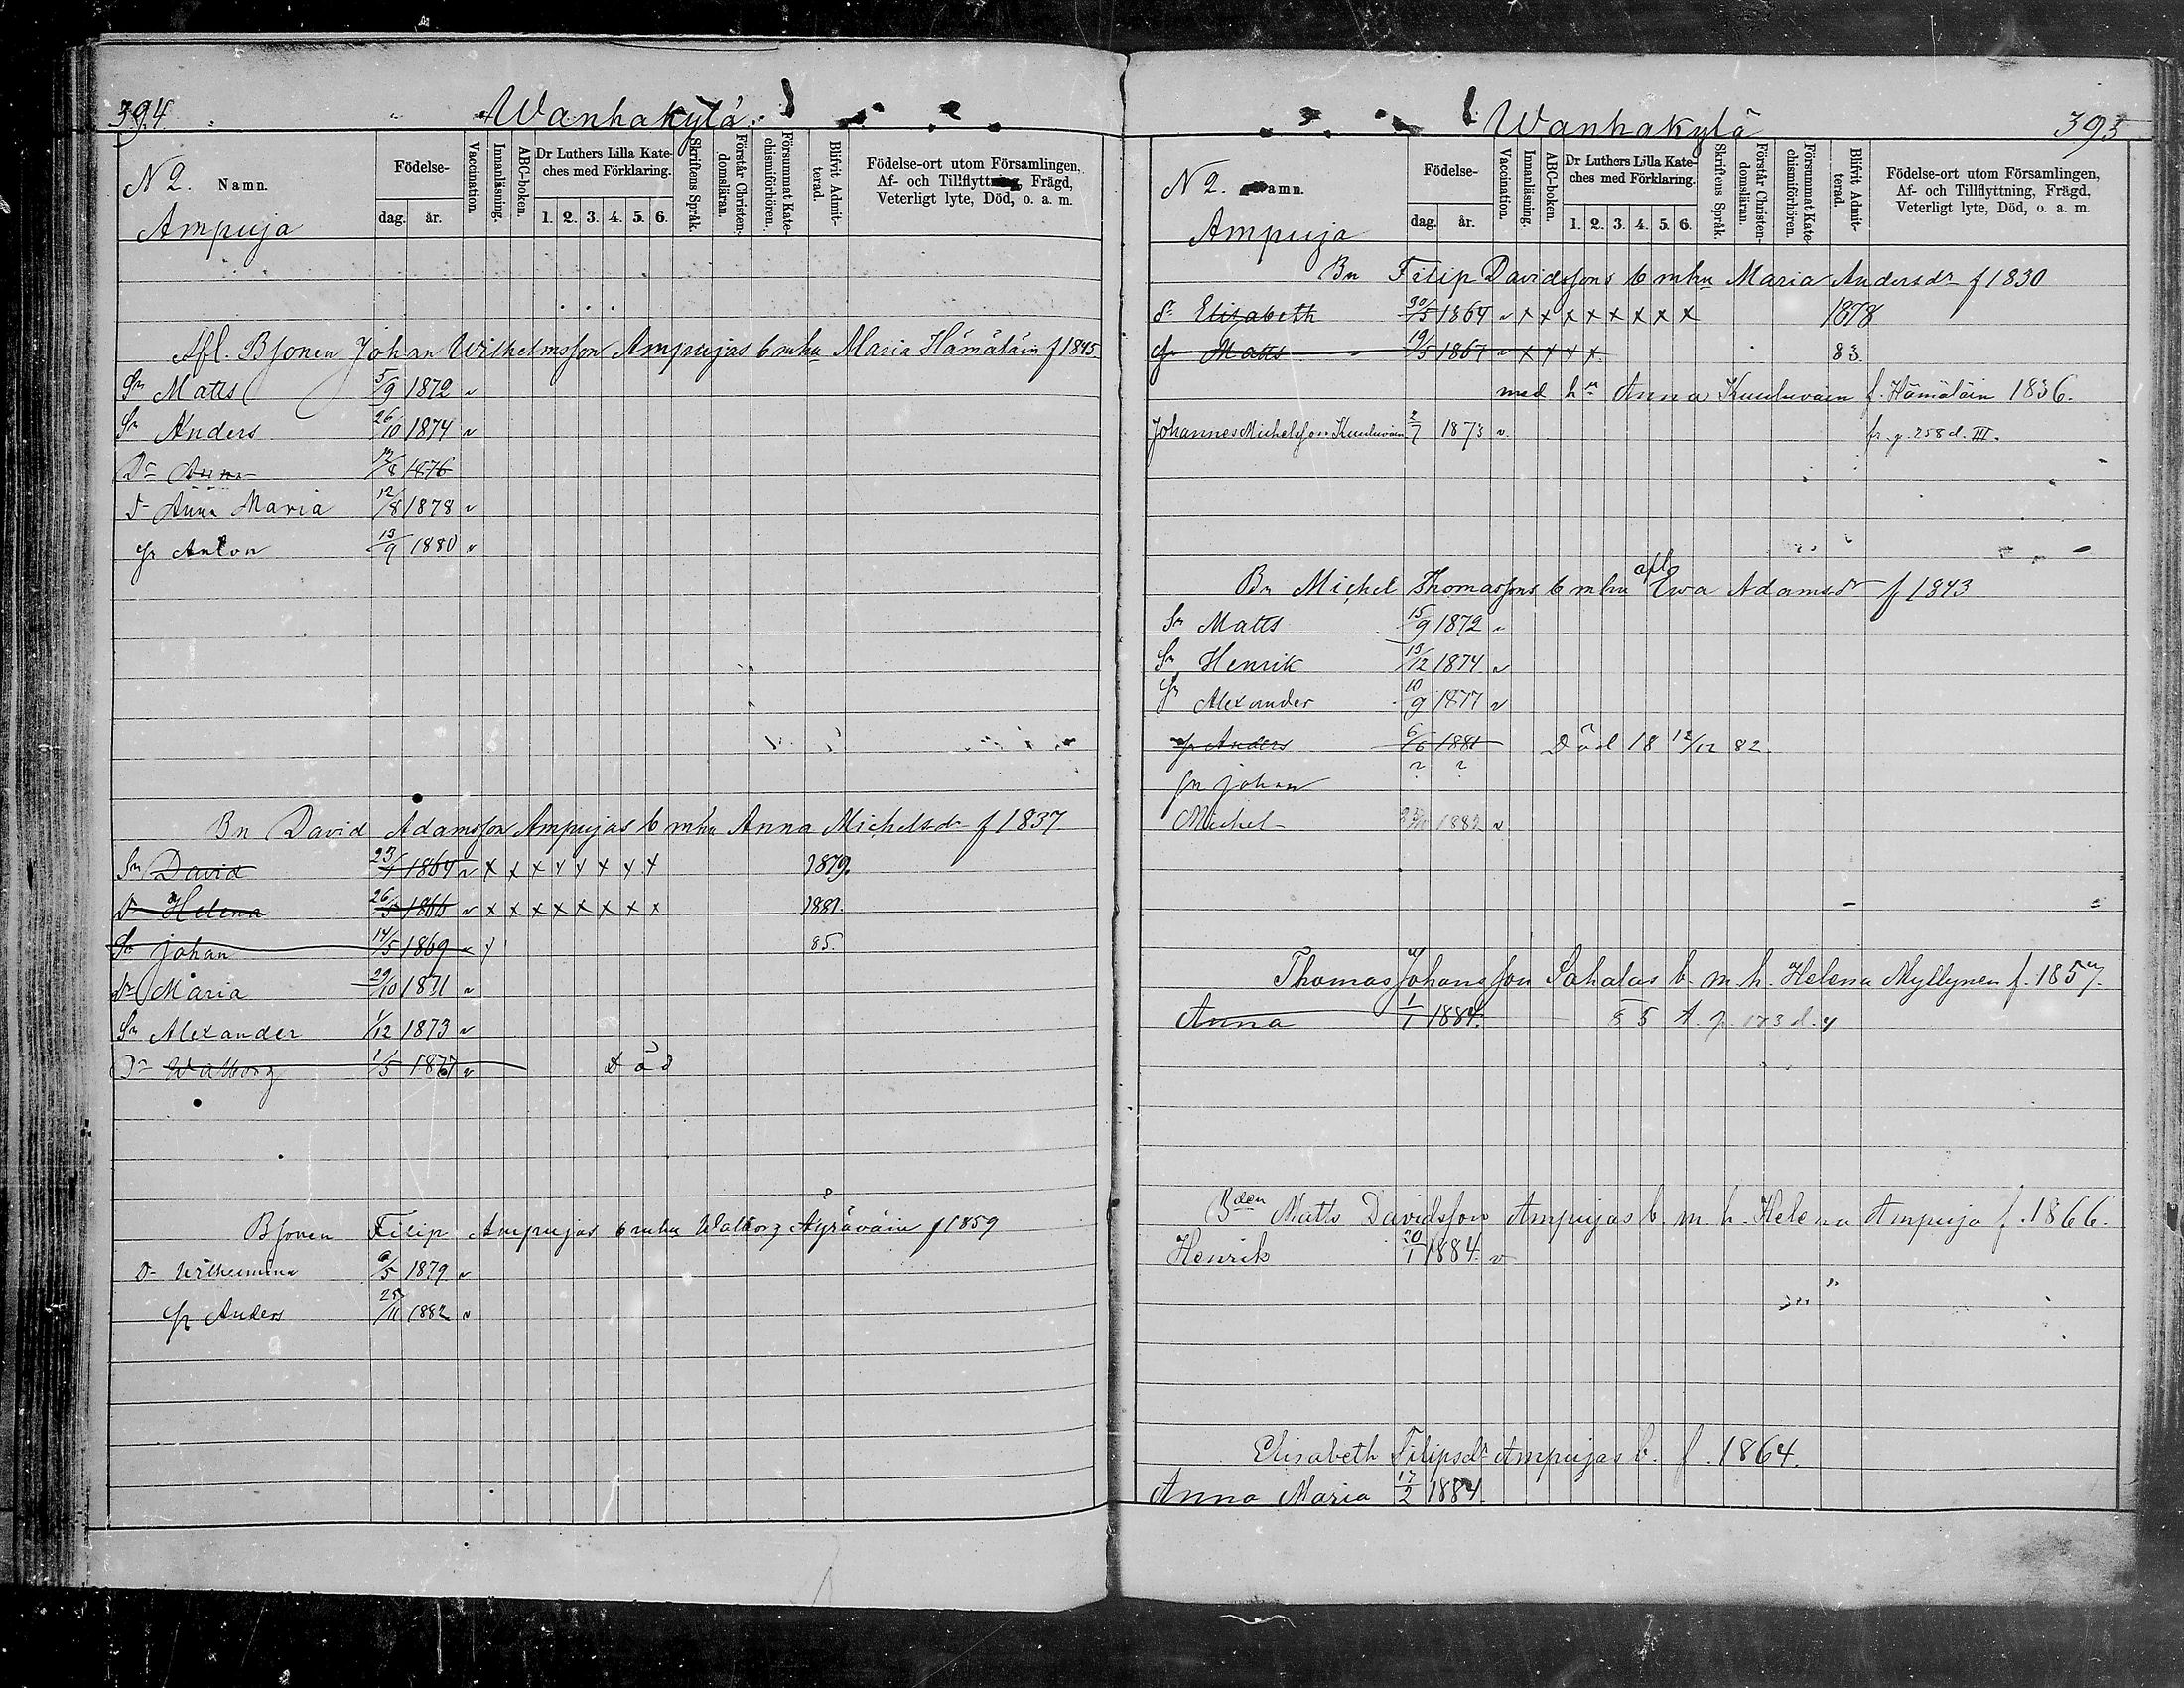 394.
Wanhakylä
N 2. Namn.
Födelse-
dag.
år.
Vaccination.
Innanläsning.
ABC-boken.
Dr Luthers Lilla Kate-
ches med Förklaring.
1. 2. 3. 4. 5. 6.
Skriftens Språk.
Förstår Christen-
domsläran.
Försummat Kate-
chismiförhören.
Blifvit Admit-
terad.
Födelse-ort utom Församlingen,
Af- och Tillflyttning, Frägd,
Veterligt lyte, Död, o. a. m.
Ampuja
Afl. Bsonen Johan Wilhelmsson Ampujas b mhu Maria Hämäläin f 1845
Sn Matts 5/9 1872 v
Sn Anders 26/10 1874 v
Dr Anna 12/8 1876
Dr Anna Maria 12/8 1878 v
Sn Anton 13/9 1880 v
Bn David Adamsson Ampujas b mhu Anna Michelsdr f 1837.
Sn David 23/4 1864 v x x x x x x x x 1879.
Dr Helena 26/5 1866 v x x x x x x x x 1881.
Sn Johan 14/5 1869 v y 85.
Dr Maria 29/10 1871 v
Sn Alexander 1/12 1873 v
Dr Walborg 1/5 1877 v Död
Bsonen Filip Ampujas b mhu Walborg Äyräväin f 1859
Dr Wilhelmina 6/5 1879 v
Sn Anders 25/11 1882 v
Wanhakylä
395
N 2. Namn.
Födelse-
dag.
år.
Vaccination.
Innanläsning.
ABC-boken.
Dr Luthers Lilla Kate-
ches med Förklaring.
1. 2. 3. 4. 5. 6.
Skriftens Språk.
Förstår Christen-
domsläran.
Försummat Kate-
chismiförhören.
Blifvit Admit-
terad.
Födelse-ort utom Församlingen,
Af- och Tillflyttning, Frägd,
Veterligt lyte, Död, o. a. m.
Ampuja
Bn Filip Davidssons b mhu Maria Andersdr f 1830
Dr Elisabeth 30/5 1864 v x x x x x x x x 1878
Sn Matts 19/5 1867 v x x x x 83.
med hu Anna Kuuluvain f. Hämäläin 1836.
Johannes Michelsson Kuuluvain 2/7 1873 v. fr. p. 258 d. III.
Bn Michel Thomassons b mhu afl Ewa Adamsdr f 1843
Sn Matts 15/9 1872 v
Sn Henrik 13/12 1874 v
Sn Alexander 10/9 1877 v
Sn Anders 6/6 1881 Död 18 12/12 82.
Sn Johan ? ?
Michel 1882 v
Thomas Johansson Sahalas b. m. h. Helena Myllynen f. 1857.
Anna 1/1 1884. 85 A. p. 173 d. y
Bden Matts Davidsson Ampujas b. m. h. Helena Ampuja f. 1866.
Henrik 20/1 1884. v
Elisabeth Filipsdr Ampujas b. f. 1864.
Anna Maria 17/2 1884.